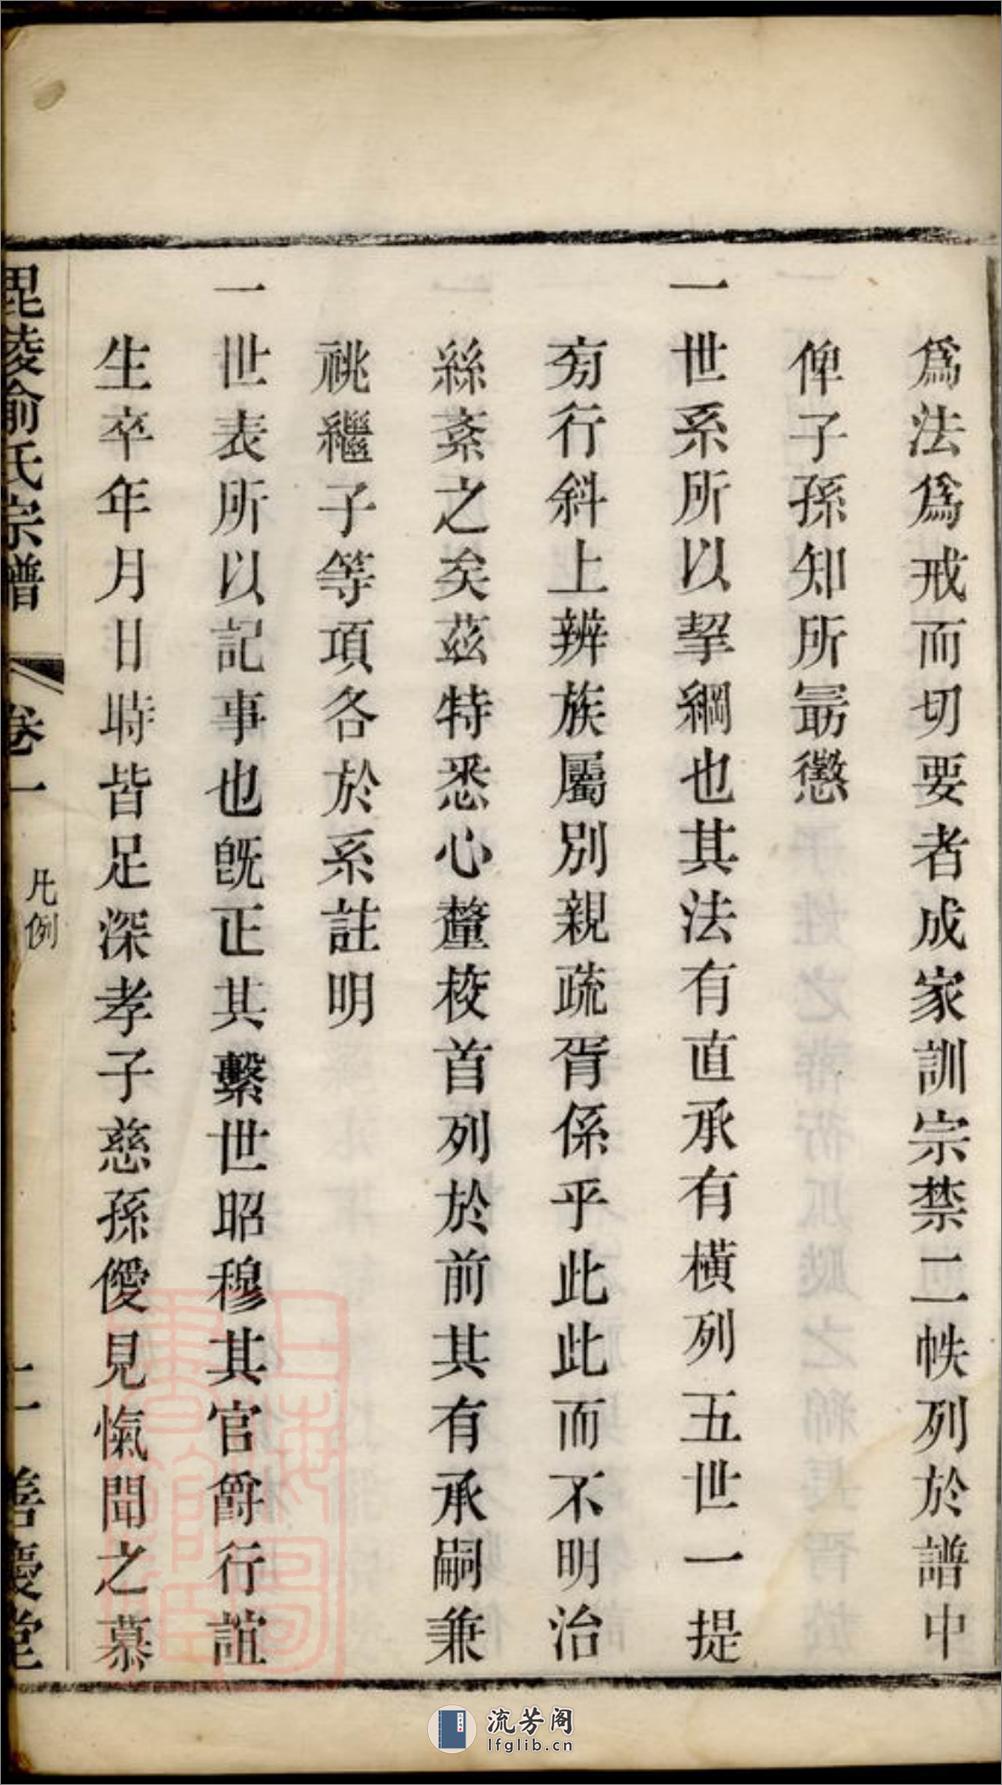 爲法爲戒而切要者成家訓宗禁二帙列於譜中
俾子孫知所勗懲
一世系所以挈綱也其法有直承有橫列五世一提
㫄行斜上辨族屬別親疏胥係乎此此而不明治
絲紊之矣茲特悉心釐校首列於前其有承嗣兼
祧繼子等項各於系註明
一世表所以記事也旣正其繫世昭穆其官爵行誼
生卒年月日時皆足深孝子慈孫僾見愾聞之慕
毘陵俞氏宗譜
卷一
凡例
十一
善慶堂
上海圖書館藏
流芳阁
lfglib.cn